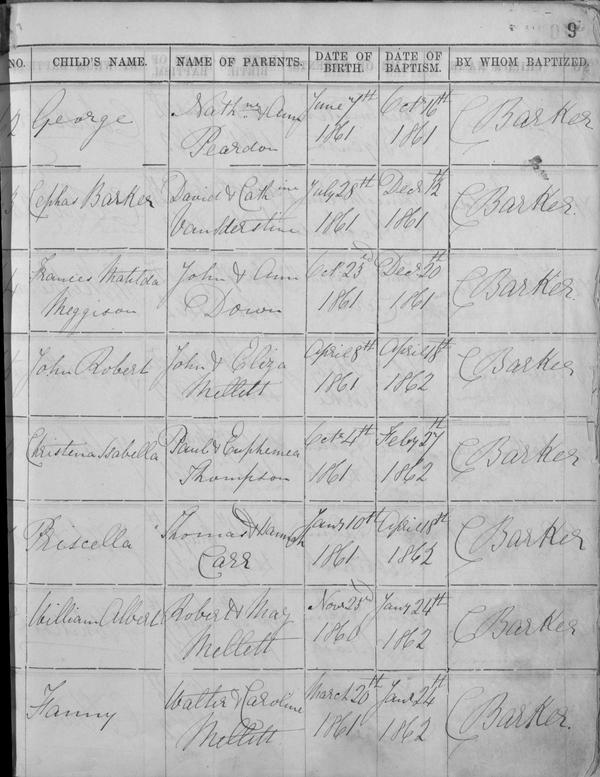 9
NO. CHILD'S NAME. NAME OF PARENTS. DATE OF BIRTH. DATE OF BAPTISM. BY WHOM BAPTIZED.
2 George Nath & Ann June 7th Octr 16th C Barker
Peardon 1861 1861
3 Cephas Barker David & Cathine July 28th Decr 12th C Barker.
Vanderstine 1861 1861
4 Frances Matilda John & Ann Octr 23rd Decr 20th C Barker.
Meggison Down 1861 1861
John Robert John & Eliza April 8th April 18th C Barker
Mellett 1861 1862
Christena Isabella Paul & Euphemea Octr 4th Feby 27th C Barker
Thompson 1861 1862
Priscella Thomas & Hannah Jany 10th April 18th C Barker
Carr 1861 1862
William Albert Robert & May Novr 23rd Jany 24th C Barker
Mellett 1860 1862
Fanny Walter & Caroline March 20th Jany 24th C Barker.
Mellett 1861 1862